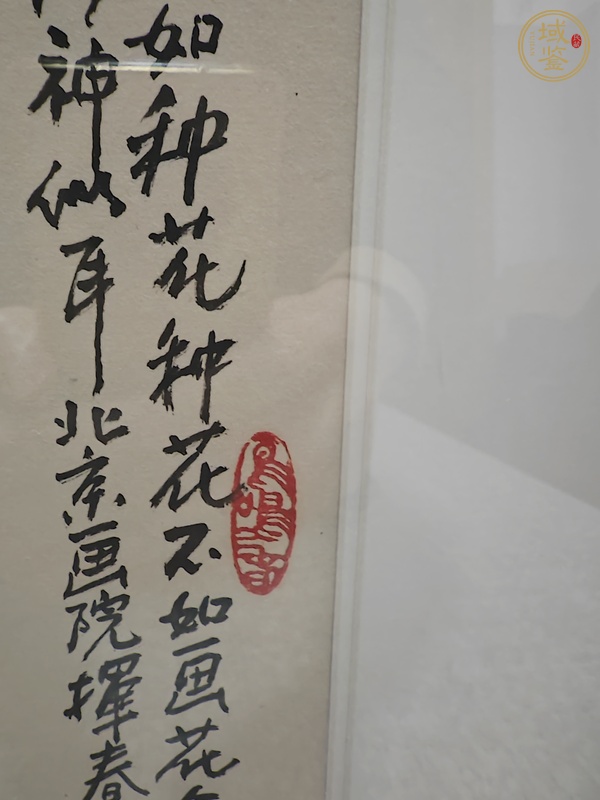 如种花种花不如画花
神似耳北京画院挥春
域鉴